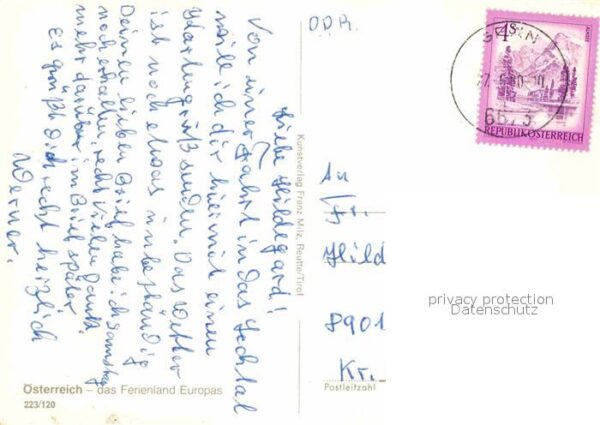 Liebe Hildegard!
Von einer Fahrt in das Lechtal
will ich dir hiermit einen
Kartengruß senden. Das Wetter
ist noch etwas unbeständig
Deinen lieben Brief habe ich Samstag
noch erhalten, recht vielen Dank.
mehr darüber im Brief später
Es grüßt Dich recht herzlich
Werner.
Österreich – das Ferienland Europas
223/120
Kunstverlag Franz Milz, Reutte/Tirol
DDR.
4S
REPUBLIK ÖSTERREICH
An
Fr.
Hild
8901
Kr.
Postleitzahl
privacy protection
Datenschutz